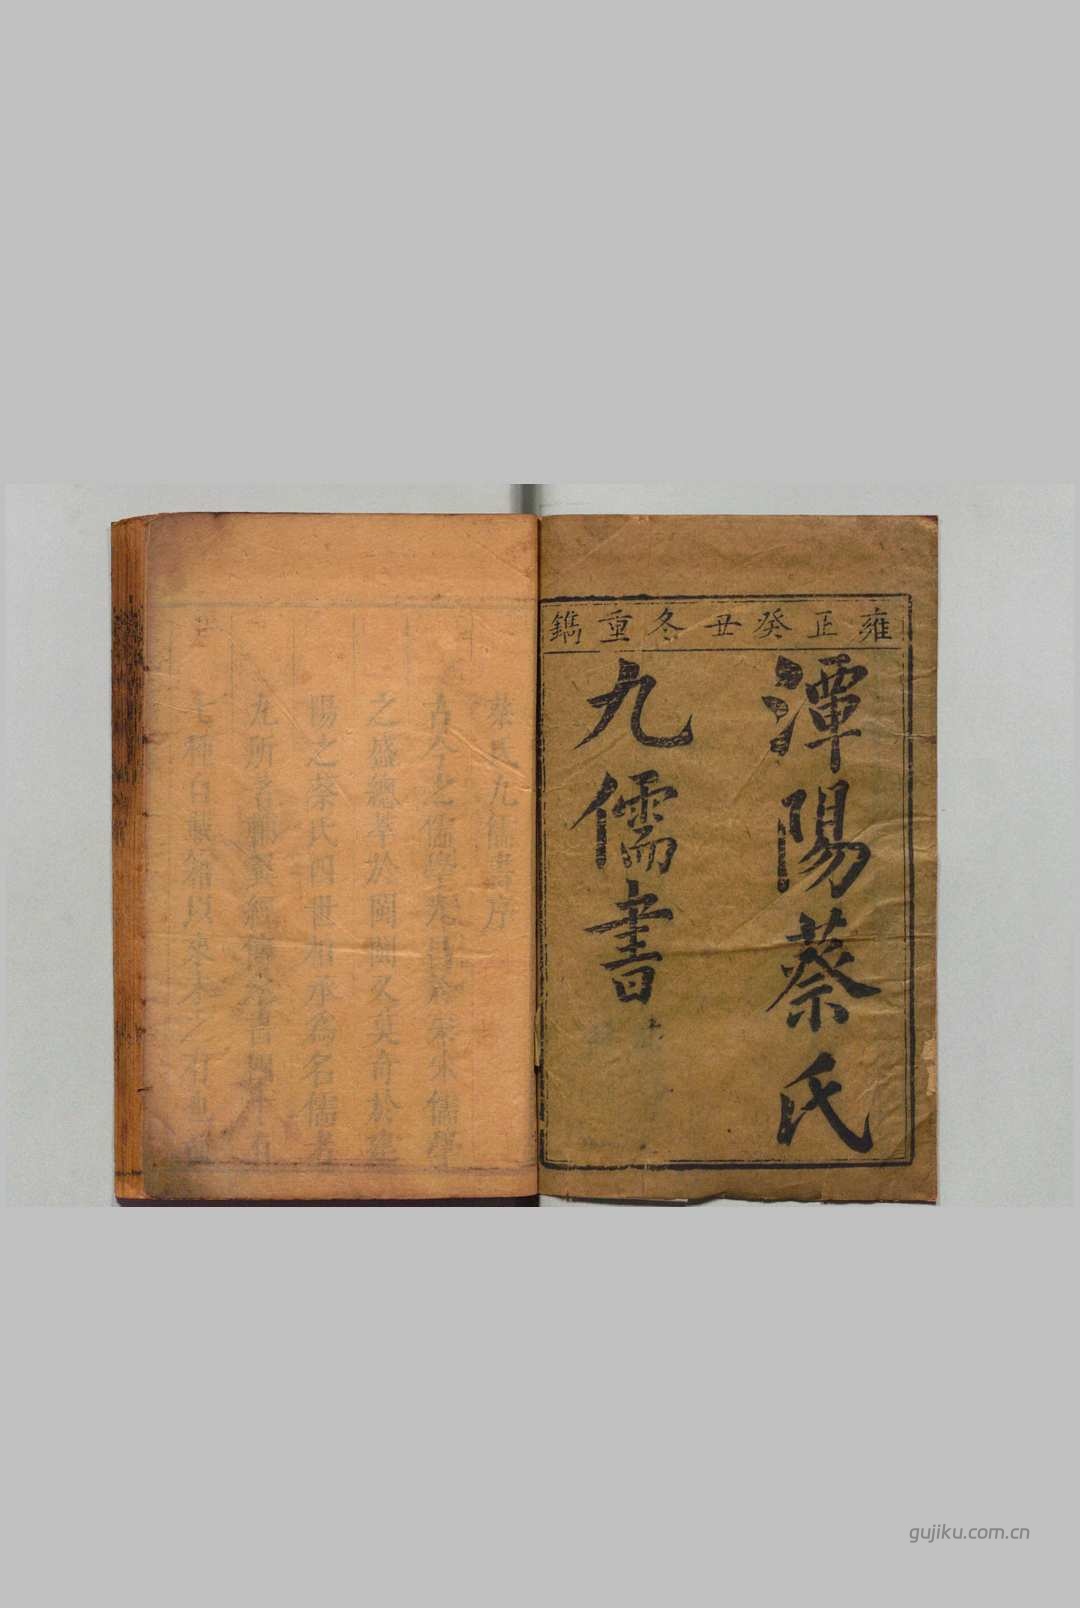 雍正癸丑冬重鐫
潭陽蔡氏
九儒書
蔡氏九儒書序
古今之儒學尤昌於宋宋儒學
之盛德萃於閩閩又莫奇於建
陽之蔡氏四世相承為名儒者
九所著
七種自
gujiku.com.cn